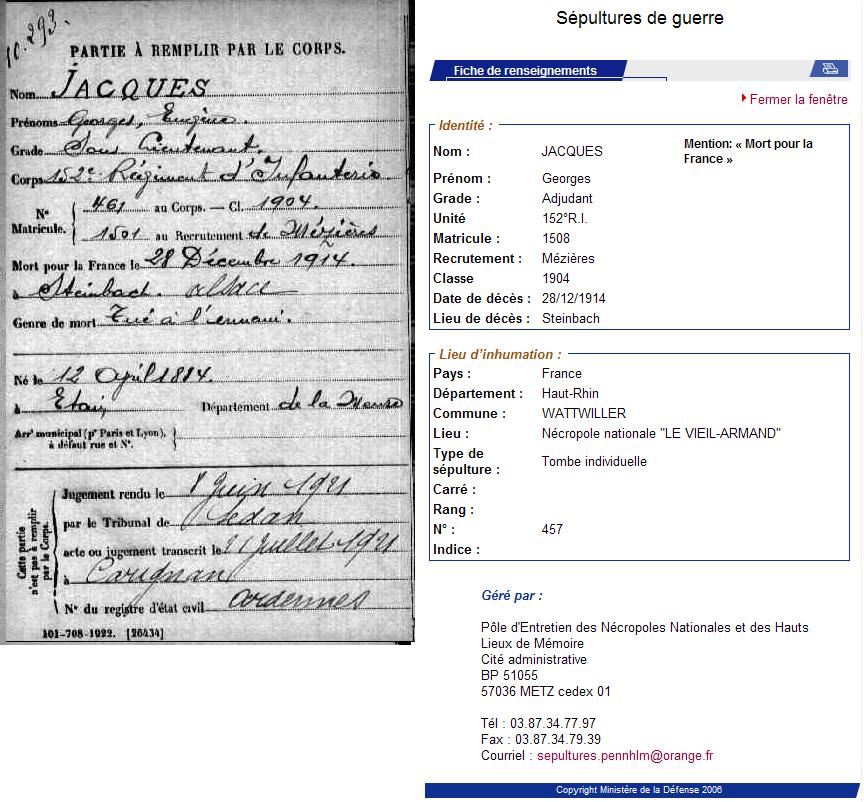 10.293.
PARTIE À REMPLIR PAR LE CORPS.
Nom JACQUES
Prénoms Georges, Eugène.
Grade Sous Lieutenant.
Corps 152e Régiment d'Infanterie.
N° Matricule. { 461 au Corps. — Cl. 1904.
1501 au Recrutement de Mézières
Mort pour la France le 28 Décembre 1914.
à Steinbach. Alsace
Genre de mort Tué à l'ennemi.
Né le 12 April 1884.
à Etain Département de la Meuse
Arrt municipal (pr Paris et Lyon), }
à défaut rue et N°.
Cette partie
n'est pas à remplir
par le Corps.
Jugement rendu le 8 Juin 1921
par le Tribunal de Sedan
acte ou jugement transcrit le 21 Juillet 1921
à Carignan
N° du registre d'état civil Ardennes
101-708-1922. [26434]
Sépultures de guerre
Fiche de renseignements
Fermer la fenêtre
Identité :
Nom : JACQUES
Mention: « Mort pour la
France »
Prénom : Georges
Grade : Adjudant
Unité 152°R.I.
Matricule : 1508
Recrutement : Mézières
Classe 1904
Date de décès : 28/12/1914
Lieu de décès : Steinbach
Lieu d'inhumation :
Pays : France
Département : Haut-Rhin
Commune : WATTWILLER
Lieu : Nécropole nationale "LE VIEIL-ARMAND"
Type de
sépulture : Tombe individuelle
Carré :
Rang :
N° : 457
Indice :
Géré par :
Pôle d'Entretien des Nécropoles Nationales et des Hauts
Lieux de Mémoire
Cité administrative
BP 51055
57036 METZ cedex 01
Tél : 03.87.34.77.97
Fax : 03.87.34.79.39
Courriel : sepultures.pennhlm@orange.fr
Copyright Ministère de la Défense 2006